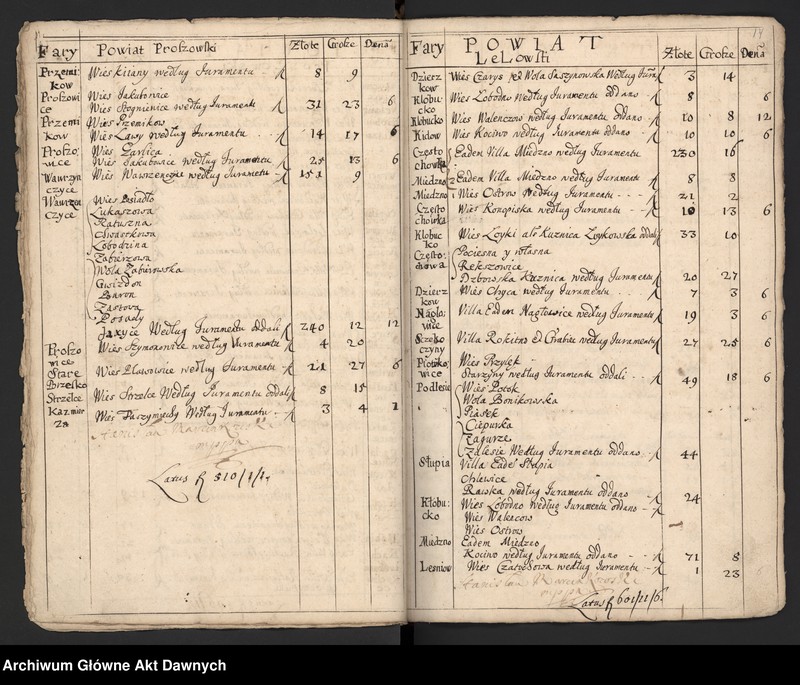 Fary Powiat Proszowski Złote Grosze Dena
Przemi kow Wies kitany według Iuramentu 8 9
Proszowi ce Wies Jakubowice
Wies Stogniewice według Iuramentu 31 23 6
Przemi kow Wies Przemikow
Wies Lawy według Iuramentu 14 17 6
Proszo wice Wies Garlica
Wies Jakubowice według Iuramentu 25 13 6
Wawrzyn czyce Wies Wawrzenczice według Iuramentu 151 9
Wawrzn czyce Wies Osiadło
Lukaszowa
Katuszna
Cwierkowa
Lobodzina
Zaburzowa
Wola Zaburowska
Gwizdon
Baron
Zastowa
Posady
Jaxyce Według Iuramentu oddali 240 12 12
Proszo wice Wies Szymonowice według Iuramentu 4 20
Stare Brzesko Wies Plawowice według Iuramentu 21 27 6
Strzelce Wies Strzelce Według Iuramentu oddali 8 15
Kazmier za Wies Paszymiechy Według Iuramentu 3 4 1
Latus f 510/1/1
14
Fary POWIAT LeLowski Złote Grosze Dena
Dzierz kow Wies Czarys Wola Saszynowska Według Iura 3 14
Kłobu cko Wies Lobodno Według Iuramentu oddano 8 6
Kłbucko Wies Walenczow według Iuramentu oddano 10 8 12
Kidow Wies Kociwo według Iuramentu oddano 10 10 6
Często chowka Eadem Villa Miedzno według Iuramentu 230 16
Miedzno Eadem Villa Miedzno według Iuramentu 8 8
Miedzno Wies Ostrow Według Iuramentu 21 2
Często chowka Wies Konopiska według Iuramentu 10 13 6
Kłobuc ko Wies Loyki Kuznica Loykowska oddali 33 10
Często: chowa Pociesna y własna
Rekszowice
Dzbowska Kuznica według Iuramentu 20 27
Dzierz kow Wies Chyca według Iuramentu 7 3 6
Nagło: wice Villa Eadem Nagłowice według Iuramentu 19 3 6
Szczeko czyny Villa Rokitno Grabiec według Iuramentu 27 25 6
Piotrko: wice Wies Przyłęk
Starzyny według Iuramentu oddali 49 18 6
Podlesie Wies Potok
Wola Bonikowska
Piasek
Ciepurka
Zagurze
Zalesie Według Iuramentu oddano 44
Słupia Villa Eadē Słupia
Chlewice
Rawska według Iuramentu oddano 24
Kłobu: cko Wies Lobodno Według Iuramentu oddano
Wies Wakacow
Wies Ostrow
Miedzno Eadem Miedzno
Kociwo według Iuramentu oddano 71 8
Lesniow Wies według Iuramentu 1 23
Latus f 601/21/6
Archiwum Główne Akt Dawnych